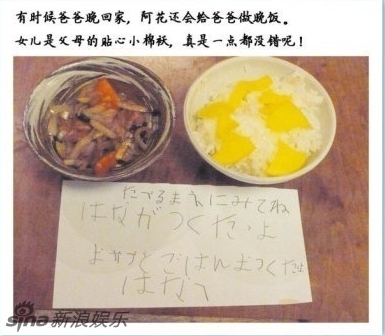 有时候爸爸晚回家，阿花还会给爸爸做晚饭。
女儿是父母的贴心小棉袄，真是一点都没错呢！
たべるまえにみてね
はながつくたよ
ごはん
はな
sina 新浪娱乐